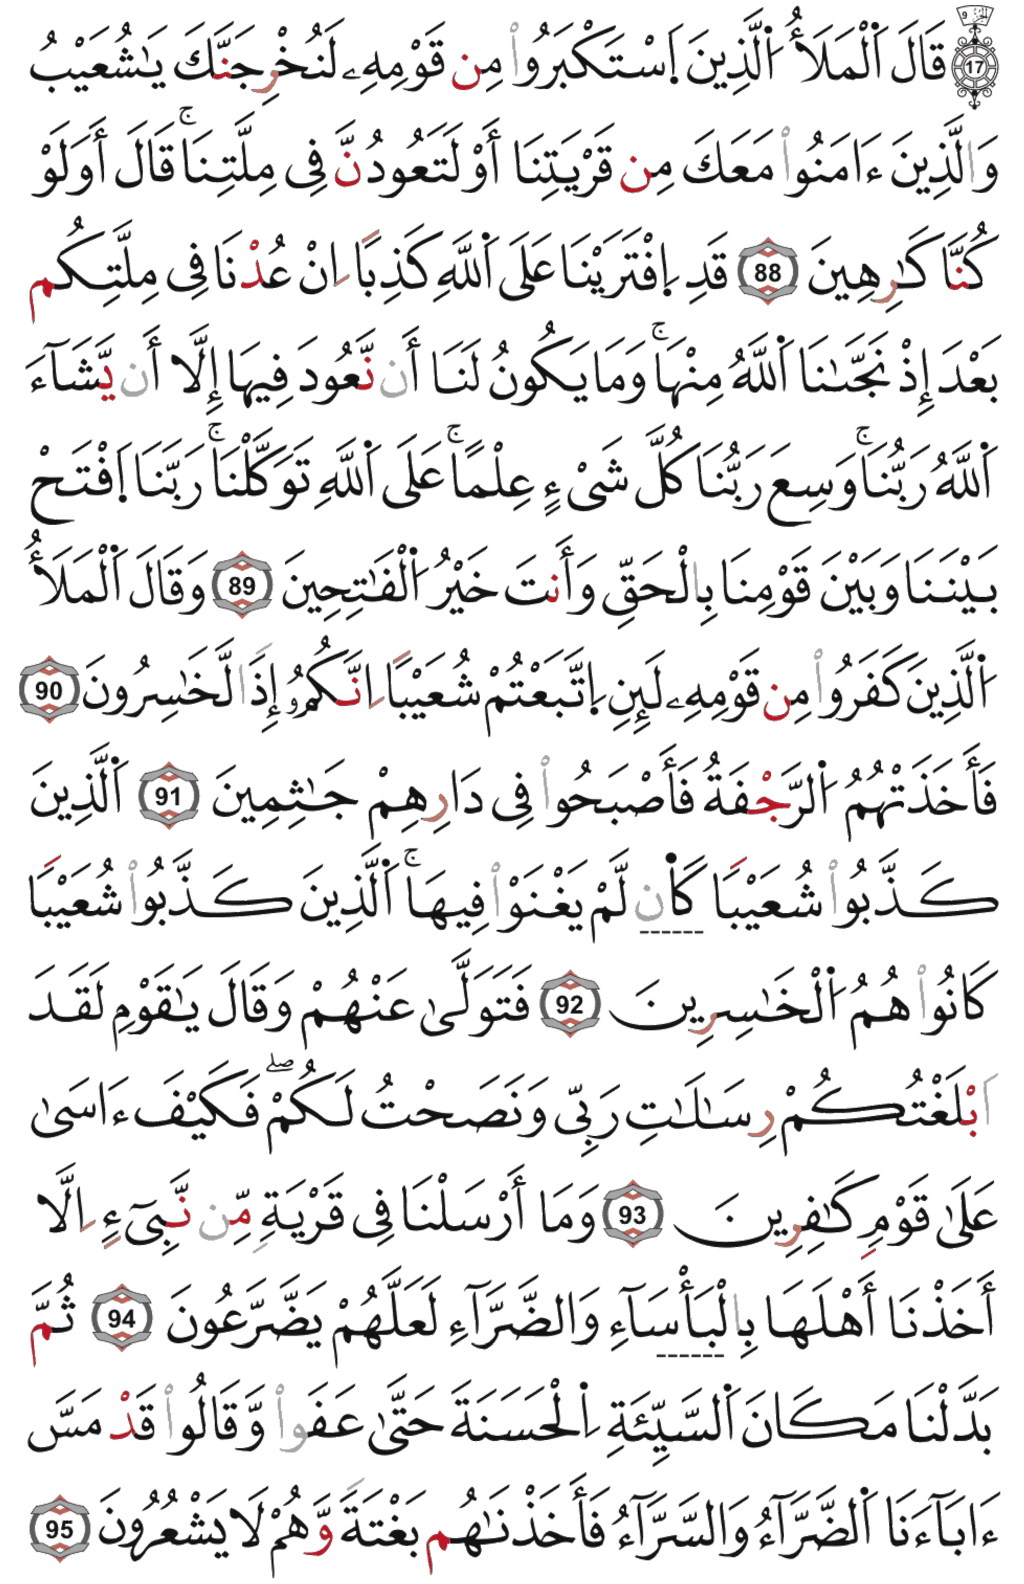 الجزء 9
17 قَالَ اَ۬لْمَلَأُ اُ۬لَّذِينَ اَ۪سْتَكْبَرُواْ مِن قَوْمِهِۦ لَنُخْرِجَنَّكَ يَٰشُعَيْبُ
وَالَّذِينَ ءَامَنُواْ مَعَكَ مِن قَرْيَتِنَا أَوْ لَتَعُودُنَّ فِى مِلَّتِنَاۚ قَالَ أَوَلَوْ
كُنَّا كَٰرِهِينَ 88 قَدِ اِ۪فْتَرَيْنَا عَلَى اَ۬للَّهِ كَذِبًا اِنْ عُدْنَا فِى مِلَّتِكُم
بَعْدَ إِذْ نَجَّىٰنَا اَ۬للَّهُ مِنْهَاۚ وَمَا يَكُونُ لَنَا أَن نَّعُودَ فِيهَا إِلَّا أَن يَّشَآءَ
اَ۬للَّهُ رَبُّنَاۚ وَسِعَ رَبُّنَا كُلَّ شَىْءٍ عِلْمًاۚ عَلَى اَ۬للَّهِ تَوَكَّلْنَاۚ رَبَّنَا اَ۪فْتَحْ
بَيْنَنَا وَبَيْنَ قَوْمِنَا بِالْحَقِّ وَأَنتَ خَيْرُ اُ۬لْفَٰتِحِينَ 89 وَقَالَ اَ۬لْمَلَأُ
اُ۬لَّذِينَ كَفَرُواْ مِن قَوْمِهِۦ لَئِنِ اِ۪تَّبَعْتُمْ شُعَيْبًا اِنَّكُمُۥ إِذَا لَّخَٰسِرُونَ 90
فَأَخَذَتْهُمُ اُ۬لرَّجْفَةُ فَأَصْبَحُواْ فِى دَارِهِمْ جَٰثِمِينَ 91 اَ۬لَّذِينَ
كَذَّبُواْ شُعَيْبًا كَأَن لَّمْ يَغْنَوْاْ فِيهَاۚ اَ۬لَّذِينَ كَذَّبُواْ شُعَيْبًا
كَانُواْ هُمُ اُ۬لْخَٰسِرِينَ 92 فَتَوَلَّىٰ عَنْهُمْ وَقَالَ يَٰقَوْمِ لَقَدَ
اَبْلَغْتُكُمْ رِسَٰلَٰتِ رَبِّى وَنَصَحْتُ لَكُمْۖ فَكَيْفَ ءَاسَىٰ
عَلَىٰ قَوْمٍ كَٰفِرِينَ 93 وَمَا أَرْسَلْنَا فِى قَرْيَةٍ مِّن نَّبِىٓءٍ اِلَّا
أَخَذْنَا أَهْلَهَا بِالْبَأْسَآءِ وَالضَّرَّآءِ لَعَلَّهُمْ يَضَّرَّعُونَ 94 ثُمَّ
بَدَّلْنَا مَكَانَ اَ۬لسَّيِّئَةِ اِ۬لْحَسَنَةَ حَتَّىٰ عَفَواْ وَّقَالُواْ قَدْ مَسَّ
ءَابَآءَنَا اَ۬لضَّرَّآءُ وَالسَّرَّآءُ فَأَخَذْنَٰهُم بَغْتَةً وَّهُمْ لَا يَشْعُرُونَ 95